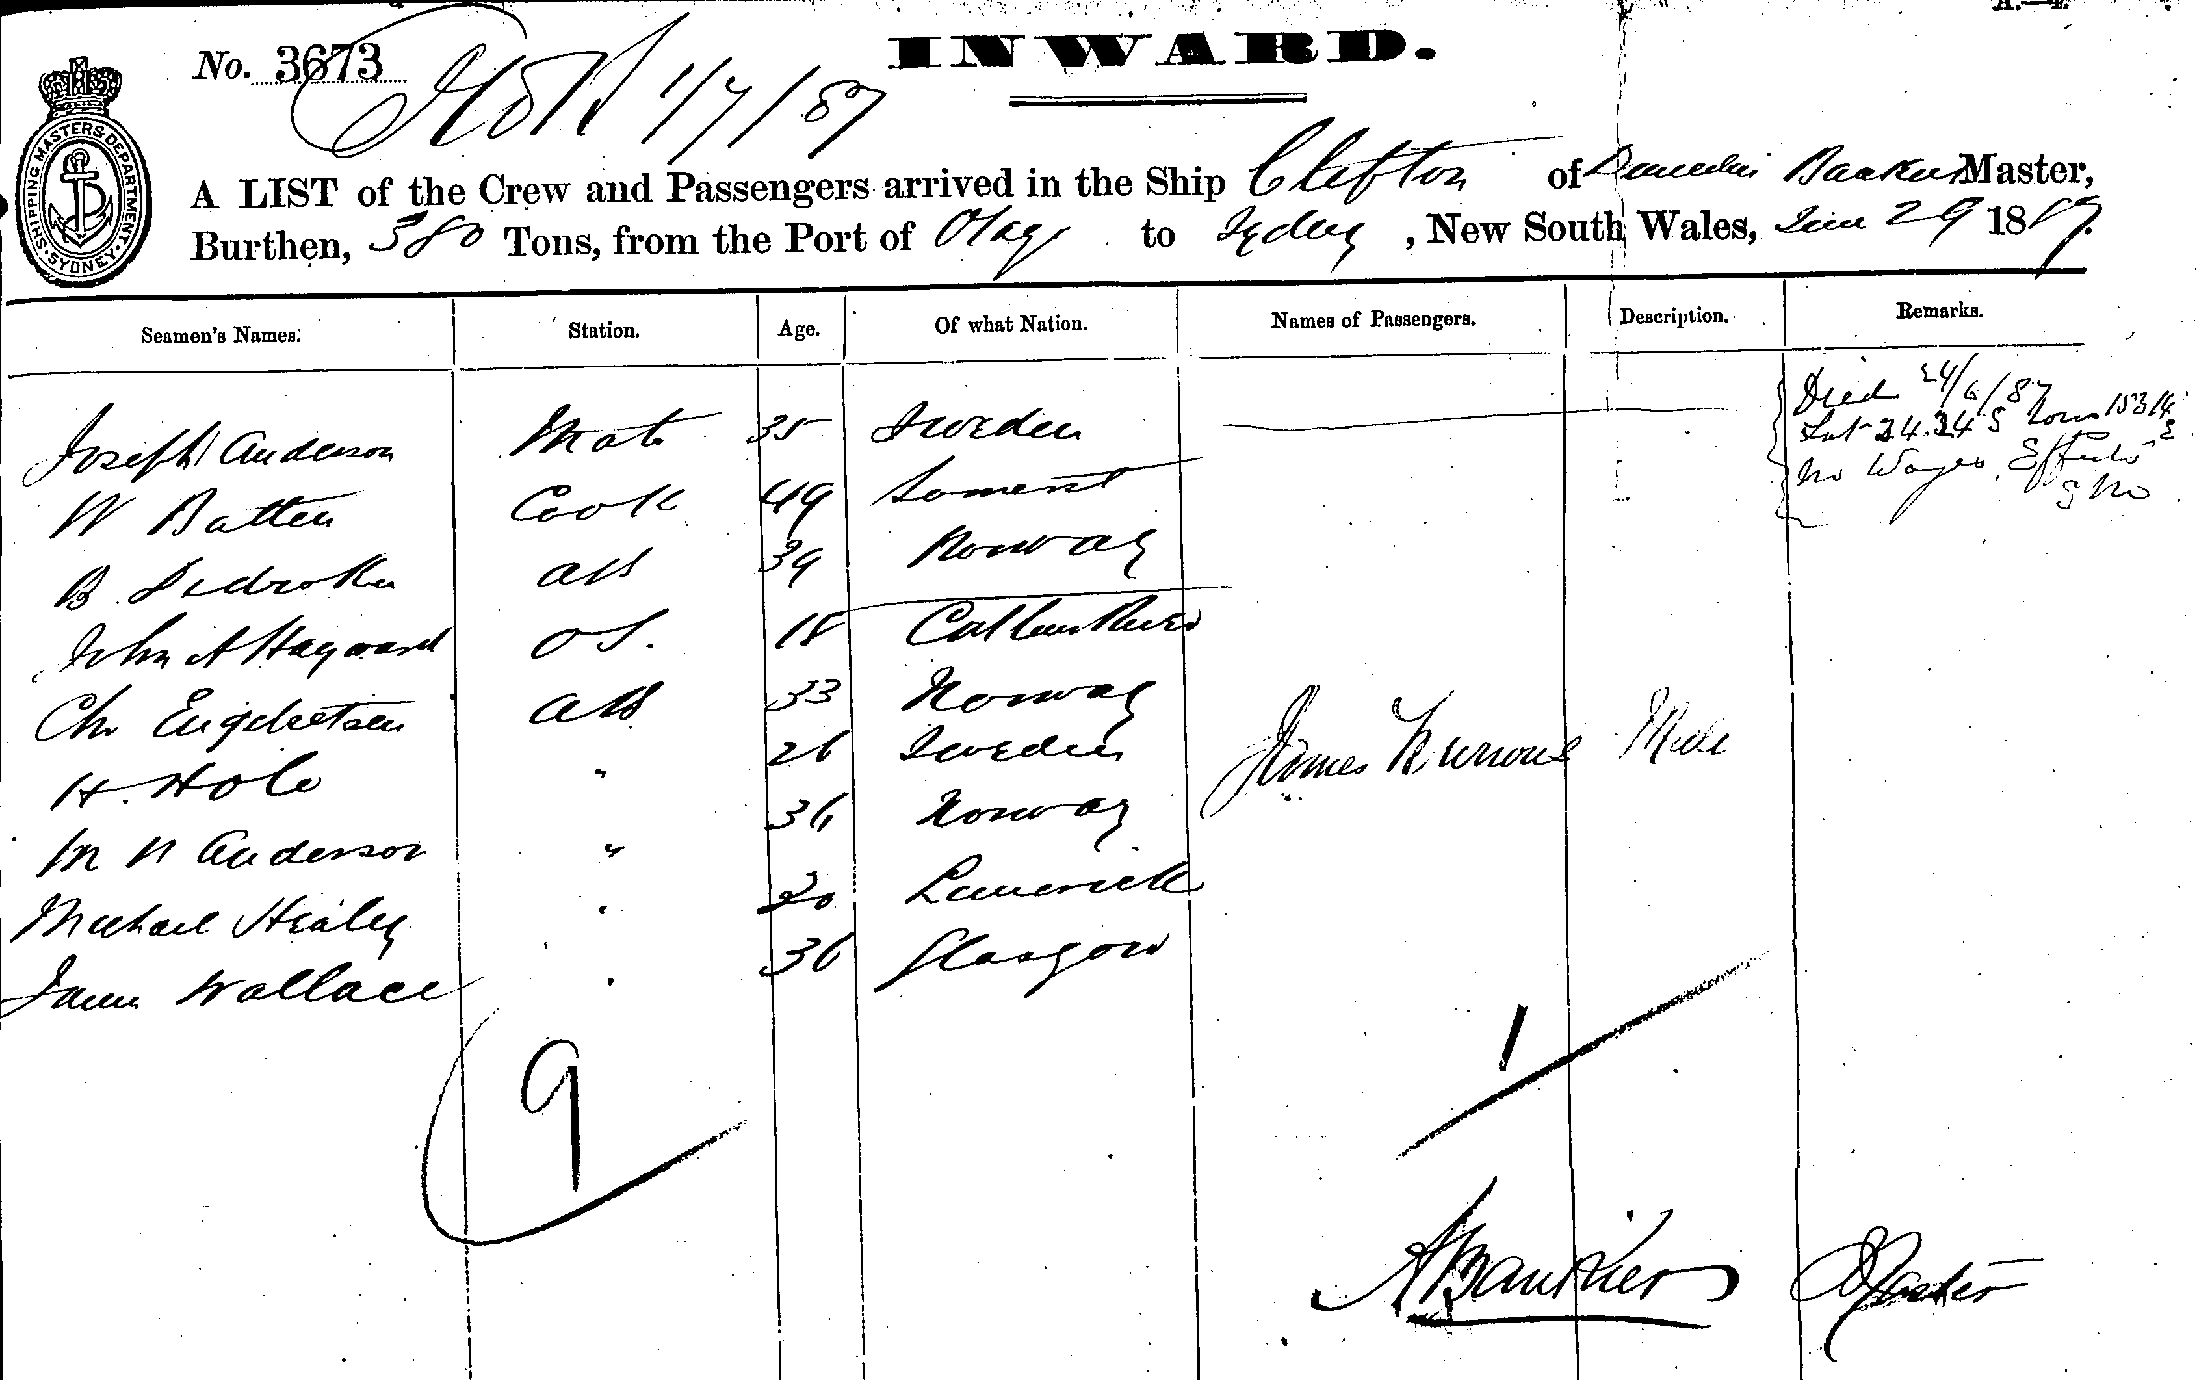 A.—4.
INWARD.
No. 3673
1/7/87
SHIPPING MASTERS DEPARTMENT. SYDNEY
A LIST of the Crew and Passengers arrived in the Ship Clifton of Dunedin Master,
Burthen, 380 Tons, from the Port of to Sydney, New South Wales, June 29 1887.
Seamen's Names. Station. Age. Of what Nation. Names of Passengers. Description. Remarks.
Died 24/6/87
Lat 24.24 S
No Wages. Effects
Joseph Anderson Mate 35 Sweden
W Batten Cook 49 Somerset
B. AB 39 Norway
John A Hayward OS. 18
Chr Engebretsen AB 33 Norway
H. Hole " 26 Sweden
James Male
M N Anderson " 36 Norway
Michael Healey " 20 Limerick
James Wallace " 36 Glasgow
9
1
Master